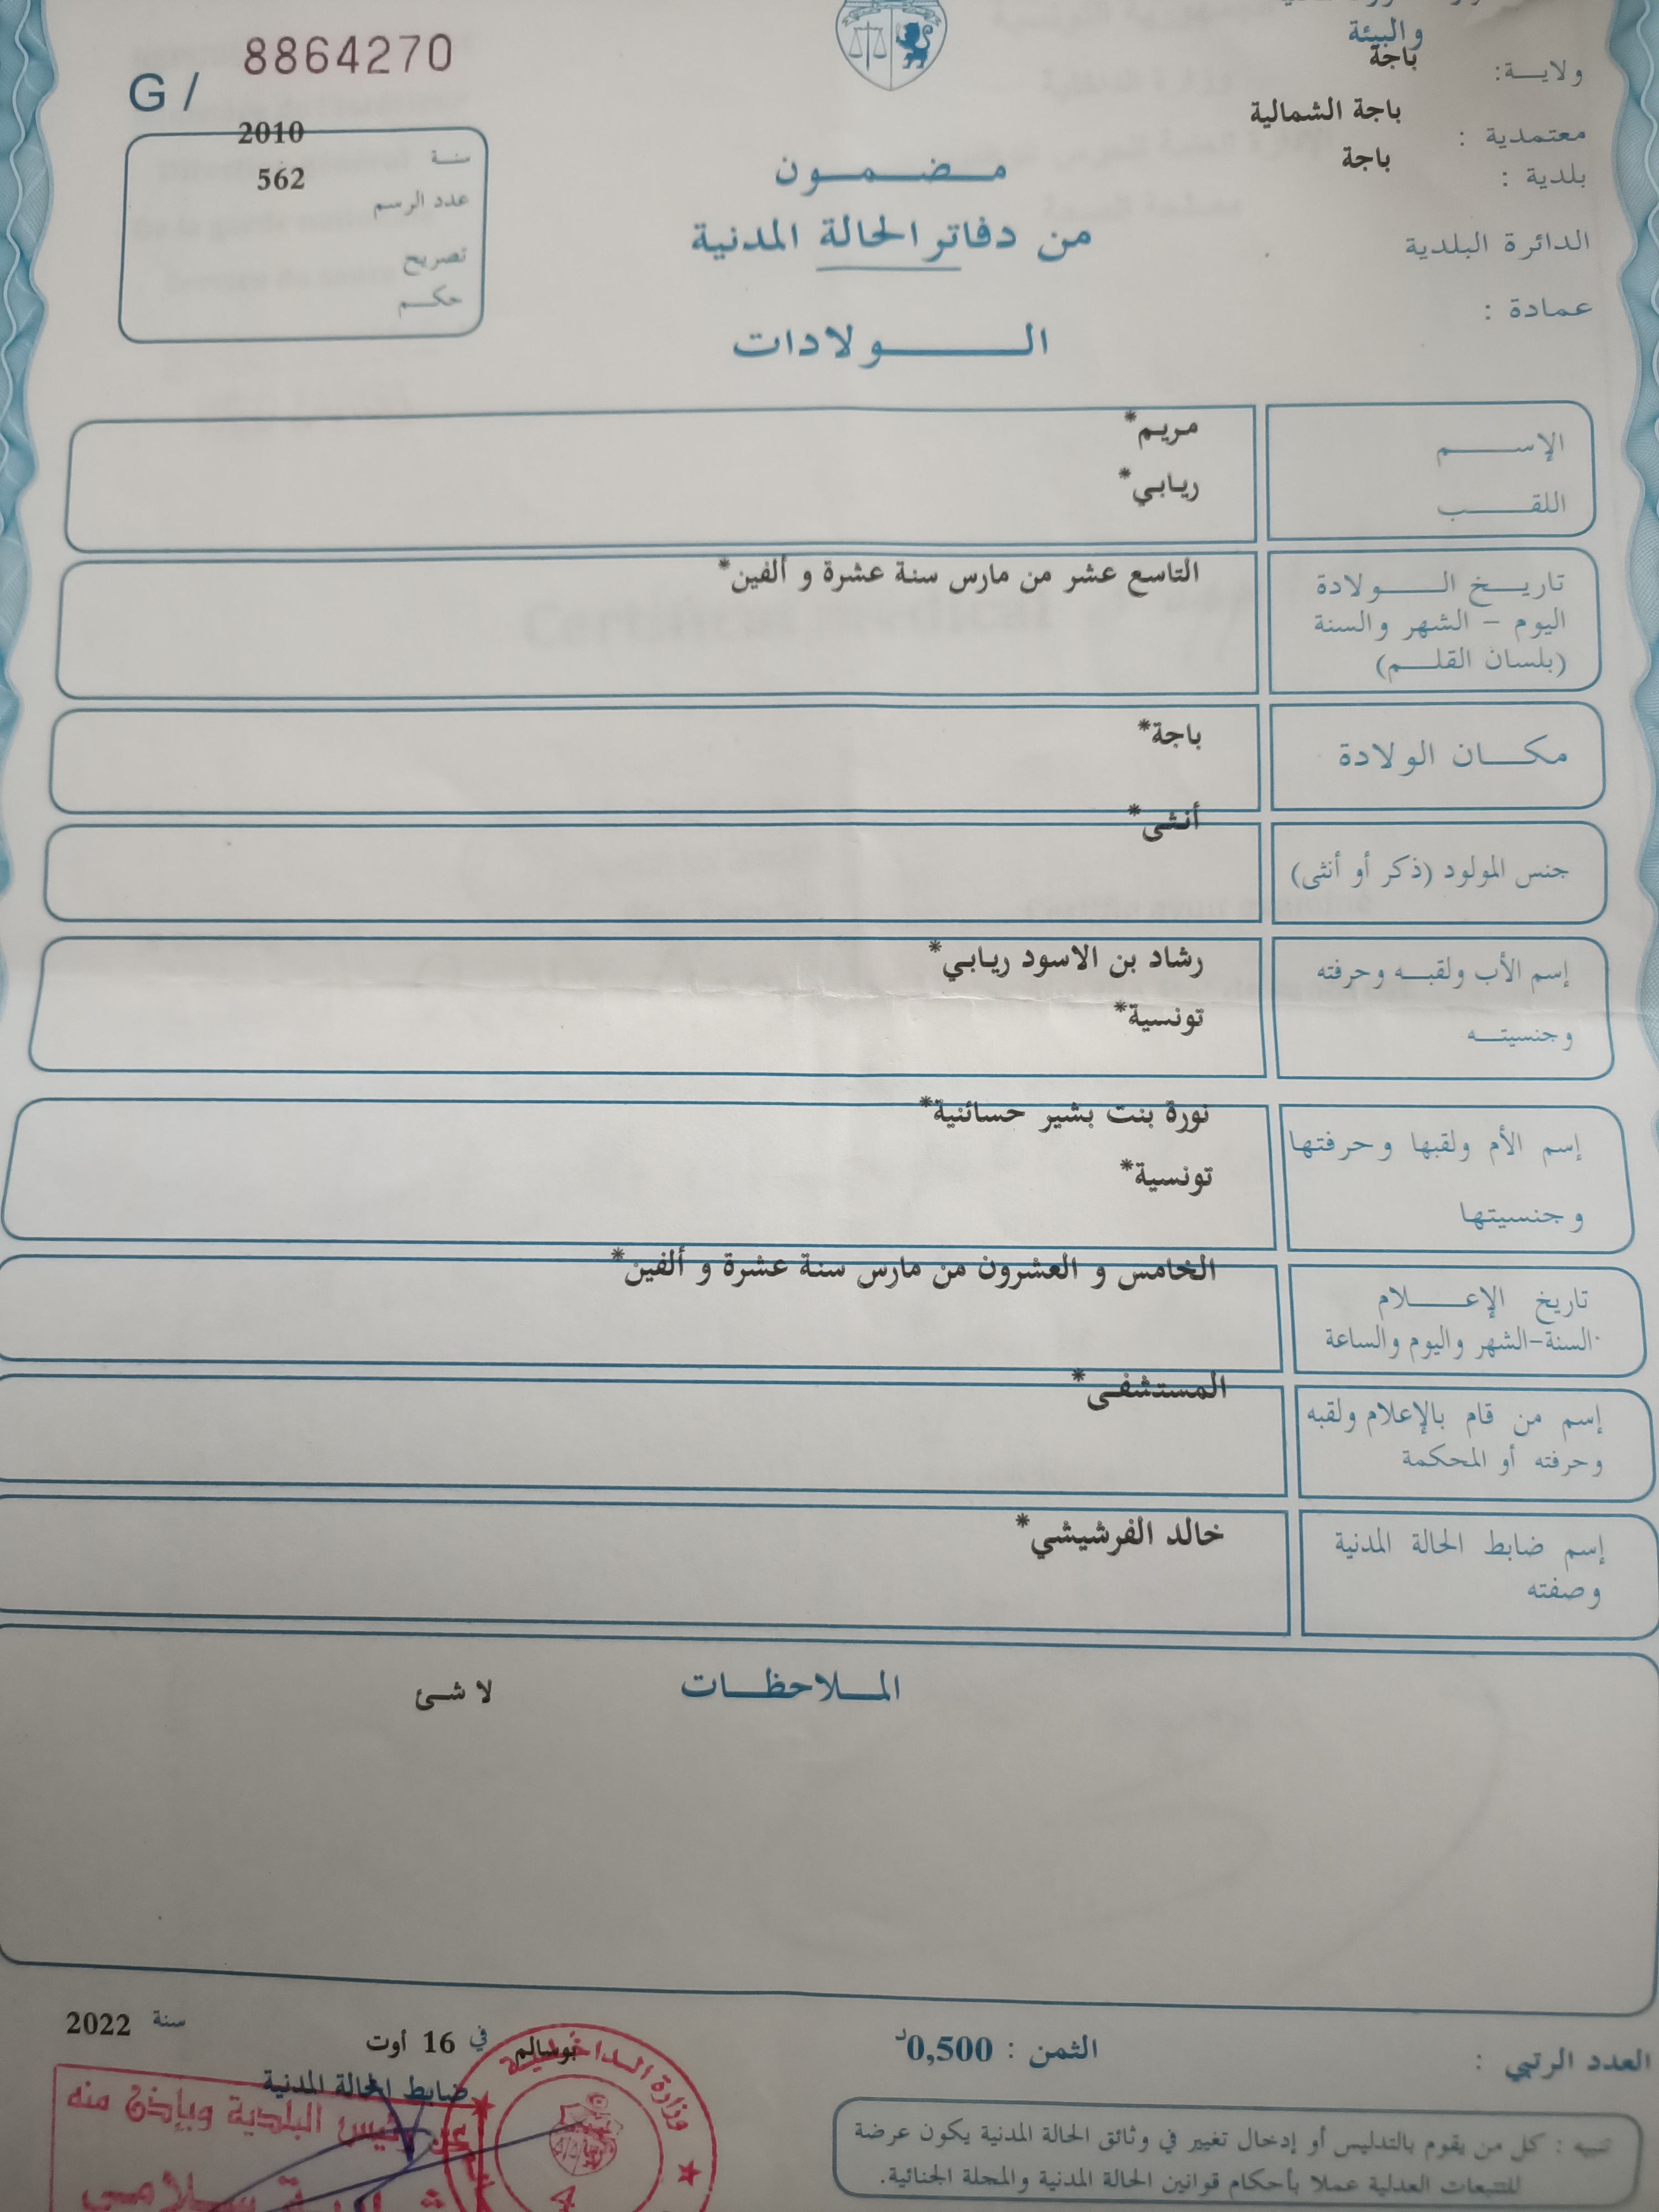 والبيئة
ولايـــة: باجة
معتمدية : باجة الشمالية
بلدية : باجة
الدائرة البلدية
عمادة :
G / 8864270
سنـة 2010
عدد الرسم 562
تصريح
حكـــم
مــضــمــون
من دفاتر الحالة المدنية
الـــولادات
الإســـــم مريم*
اللقـــــب ريـابـي*
تاريــخ الـــولادة التاسع عشر من مارس سنة عشرة و ألفين*
اليوم – الشهر والسنة
(بلسان القلـــم)
مكـــان الولادة باجة*
جنس المولود (ذكر أو أنثى) أنـثـى*
إسم الأب ولقبـــه وحرفته رشاد بن الاسود ريـابـي*
وجنسيتـــه تونسية*
إسم الأم ولقبها وحرفتها نورة بنت بشير حسائنية*
وجنسيتها تونسية*
تاريخ الإعـــــلام الخامس و العشرون من مارس سنة عشرة و ألفين*
السنة-الشهر واليوم والساعة
إسم من قام بالإعلام ولقبه المستشفى*
وحرفته أو المحكمة
إسم ضابط الحالة المدنية خالد الفرشيشي*
وصفته
المـــلاحظـــات
لا شـئ
العدد الرتبي :
الثمن : 0,500د
بوسالم في 16 أوت سنة 2022
ضابط الحالة المدنية
وزارة الـداخـلـيـة
عن رئيس البلدية وبإذن منه
تنبيه : كل من يقوم بالتدليس أو إدخال تغيير في وثائق الحالة المدنية يكون عرضة
للتتبعات العدلية عملا بأحكام قوانين الحالة المدنية والمجلة الجنائية.